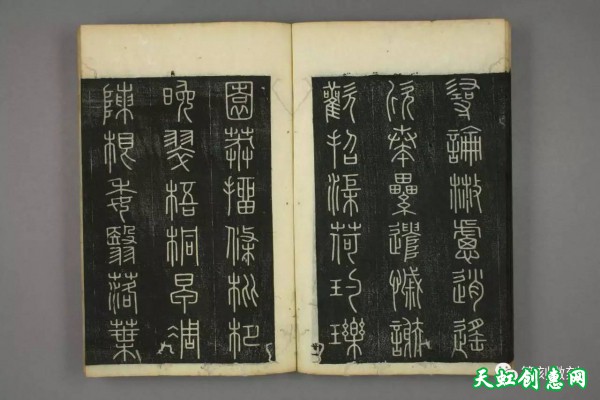 尋論散慮逍遙
欣奏纍遣慽謝
歡招渠荷玓瓅
園莽㩅條枇杷
晚翠梧桐早凋
陳根委翳落葉
天虹创意网